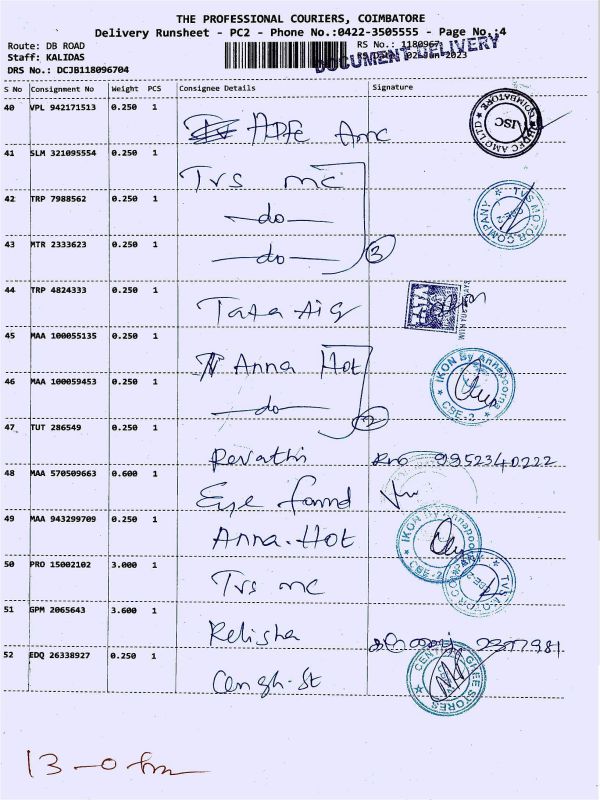 THE PROFESSIONAL COURIERS, COIMBATORE
Delivery Runsheet - PC2 - Phone No.:0422-3505555 - Page No.:4
Route: DB ROAD RS No.: 1180967
Staff: KALIDAS 02-Jun-2023
DOCUMENT DELIVERY
DRS No.: DCJB118096704
S No Consignment No Weight PCS Consignee Details Signature
40 VPL 942171513 0.250 1
HDFC Amc
HDFC AMC LTD COIMBATORE ISC
41 SLM 321095554 0.250 1
Tvs mc
42 TRP 7988562 0.250 1
—do—
TVS MOTOR COMPANY CBE-2
43 MTR 2333623 0.250 1
—do— 3
44 TRP 4824333 0.250 1
Tata Aig
WITH YOU ALWAYS
45 MAA 100055135 0.250 1
Anna Hot
IKON By Annapoorna CBE-2
46 MAA 100059453 0.250 1
—do— 2
47 TUT 286549 0.250 1
Revathi 9952340222
48 MAA 570509663 0.600 1
Eye found
49 MAA 943299709 0.250 1
Anna.Hot
IKON By Annapoorna CBE-2
50 PRO 15002102 3.000 1
Tvs mc
TVS MOTOR COMPANY CBE-2
51 GPM 2065643 3.600 1
Relisha
52 EDQ 26338927 0.250 1
STORES
13-0